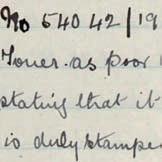 No 54042/19
Toner. as poor
stating that it
is duly stampe